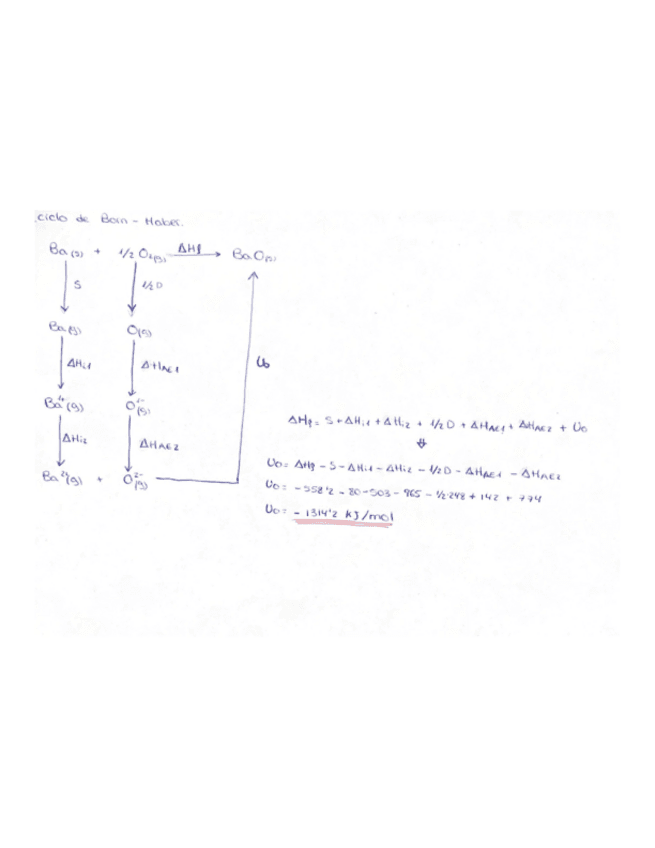 ciclo de Born-Haber.
Ba(s) + 1/2 O2(g) ΔHf BaO(s)
S 1/2D
Ba(g) O(g)
ΔHi1 ΔHAE1 Uo
Ba1+(g) O1-(g)
ΔHi2 ΔHAE2
Ba2+(g) + O2-(g)
ΔHf = S + ΔHi1 + ΔHi2 + 1/2D + ΔHAE1 + ΔHAE2 + Uo
⇓
Uo = ΔHf - S - ΔHi1 - ΔHi2 - 1/2D - ΔHAE1 - ΔHAE2
Uo = -558'2 - 80 - 503 - 965 - 1/2·248 + 142 + 774
Uo = -1314'2 KJ/mol